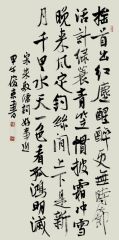 搖首出紅塵醒醉更無時節
活計綠蓑青笠慣披霜沖雪
晚來風定釣絲閒上下是新
月千里水天一色看孤鴻明滅
宋朱敦儒詞好事近
甲午書